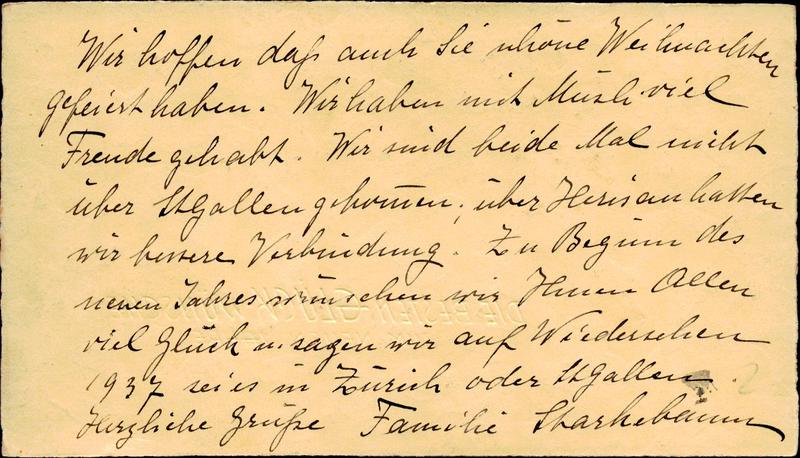 Wir hoffen daß auch Sie schöne Weihnachten
gefeiert haben. Wir haben mit Musli viel
Freude gehabt. Wir sind beide Mal nicht
über StGallen gekom̅en, über Herisau hatten
wir bessere Verbindung. Zu Beginn des
neuen Jahres wünschen wir Ihnen Allen
viel Glück u. sagen wir auf Wiedersehen
1937 sei es in Zürich oder StGallen.
Herzliche Grüße Familie Starkebaum